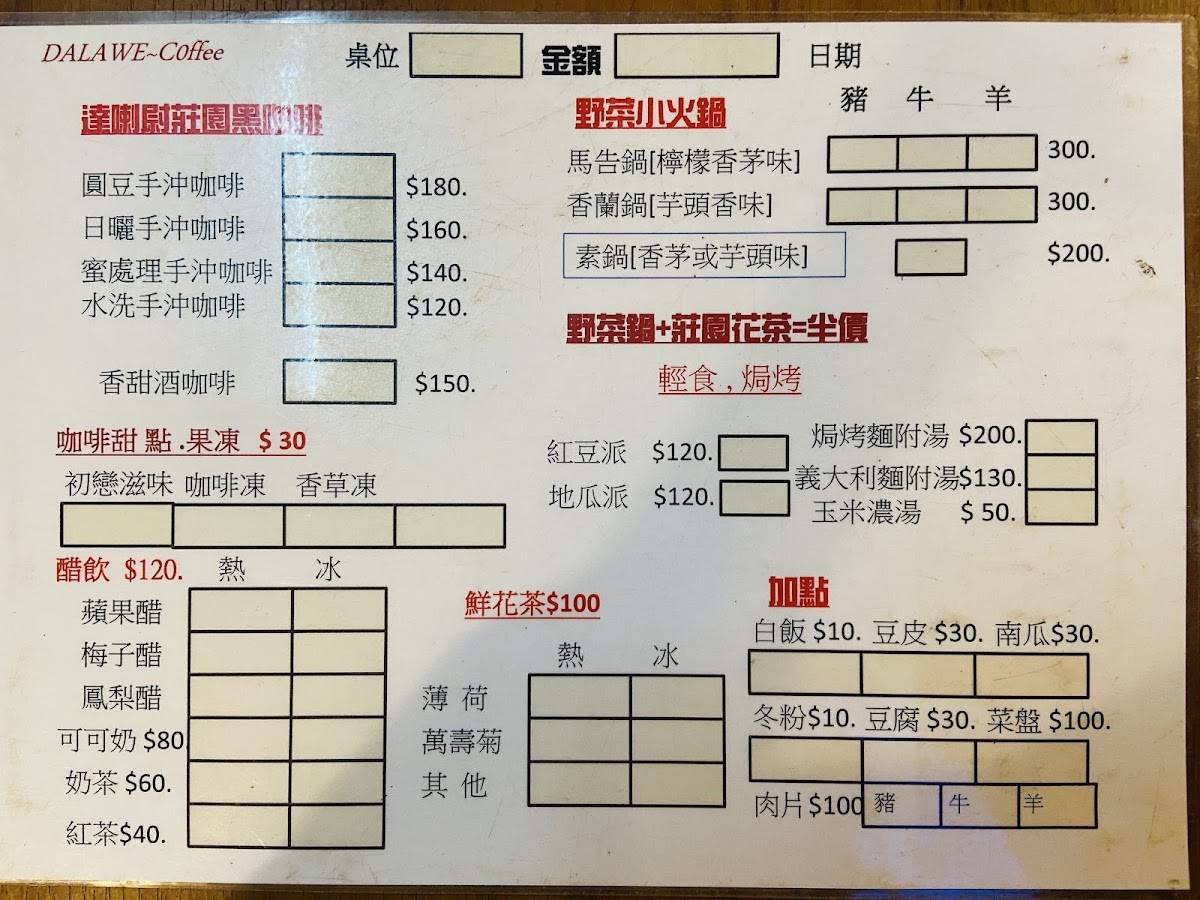 DALAWE~C0ffee
桌位 金額 日期
達喇尉莊園黑咖啡
圓豆手沖咖啡 $180.
日曬手沖咖啡 $160.
蜜處理手沖咖啡 $140.
水洗手沖咖啡 $120.
香甜酒咖啡 $150.
咖啡甜 點 .果凍 $ 30
初戀滋味 咖啡凍 香草凍
醋飲 $120. 熱 冰
蘋果醋
梅子醋
鳳梨醋
可可奶 $80.
奶茶 $60.
紅茶$40.
野菜小火鍋 豬 牛 羊
馬告鍋[檸檬香茅味] 300.
香蘭鍋[芋頭香味] 300.
素鍋[香茅或芋頭味] $200.
野菜鍋+莊園花茶=半價
輕食 , 焗烤
紅豆派 $120.
地瓜派 $120.
焗烤麵附湯 $200.
義大利麵附湯$130.
玉米濃湯 $ 50.
鮮花茶$100
熱 冰
薄 荷
萬壽菊
其 他
加點
白飯 $10. 豆皮 $30. 南瓜$30.
冬粉$10. 豆腐 $30. 菜盤 $100.
肉片$100 豬 牛 羊